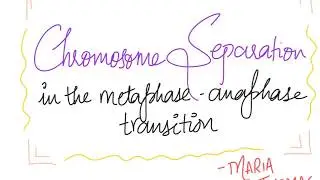 Chromosome Separation
in the metaphase-anaphase
transition
- MARIA